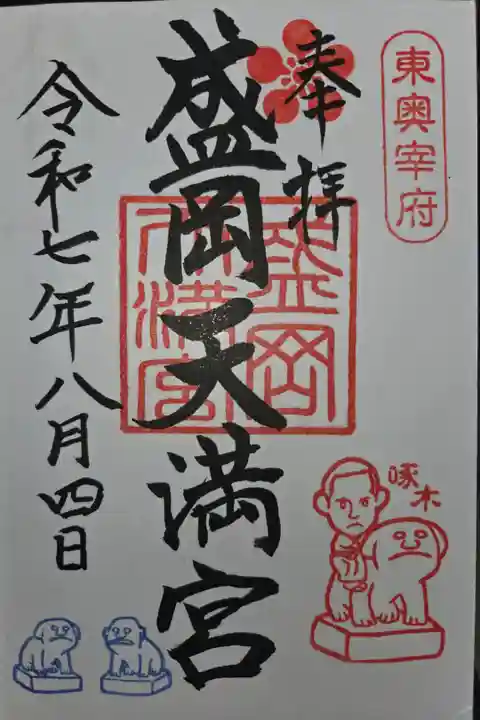 東奥宰府
奉拝
盛岡天満宮
盛岡
天満宮
令和七年八月四日
啄木